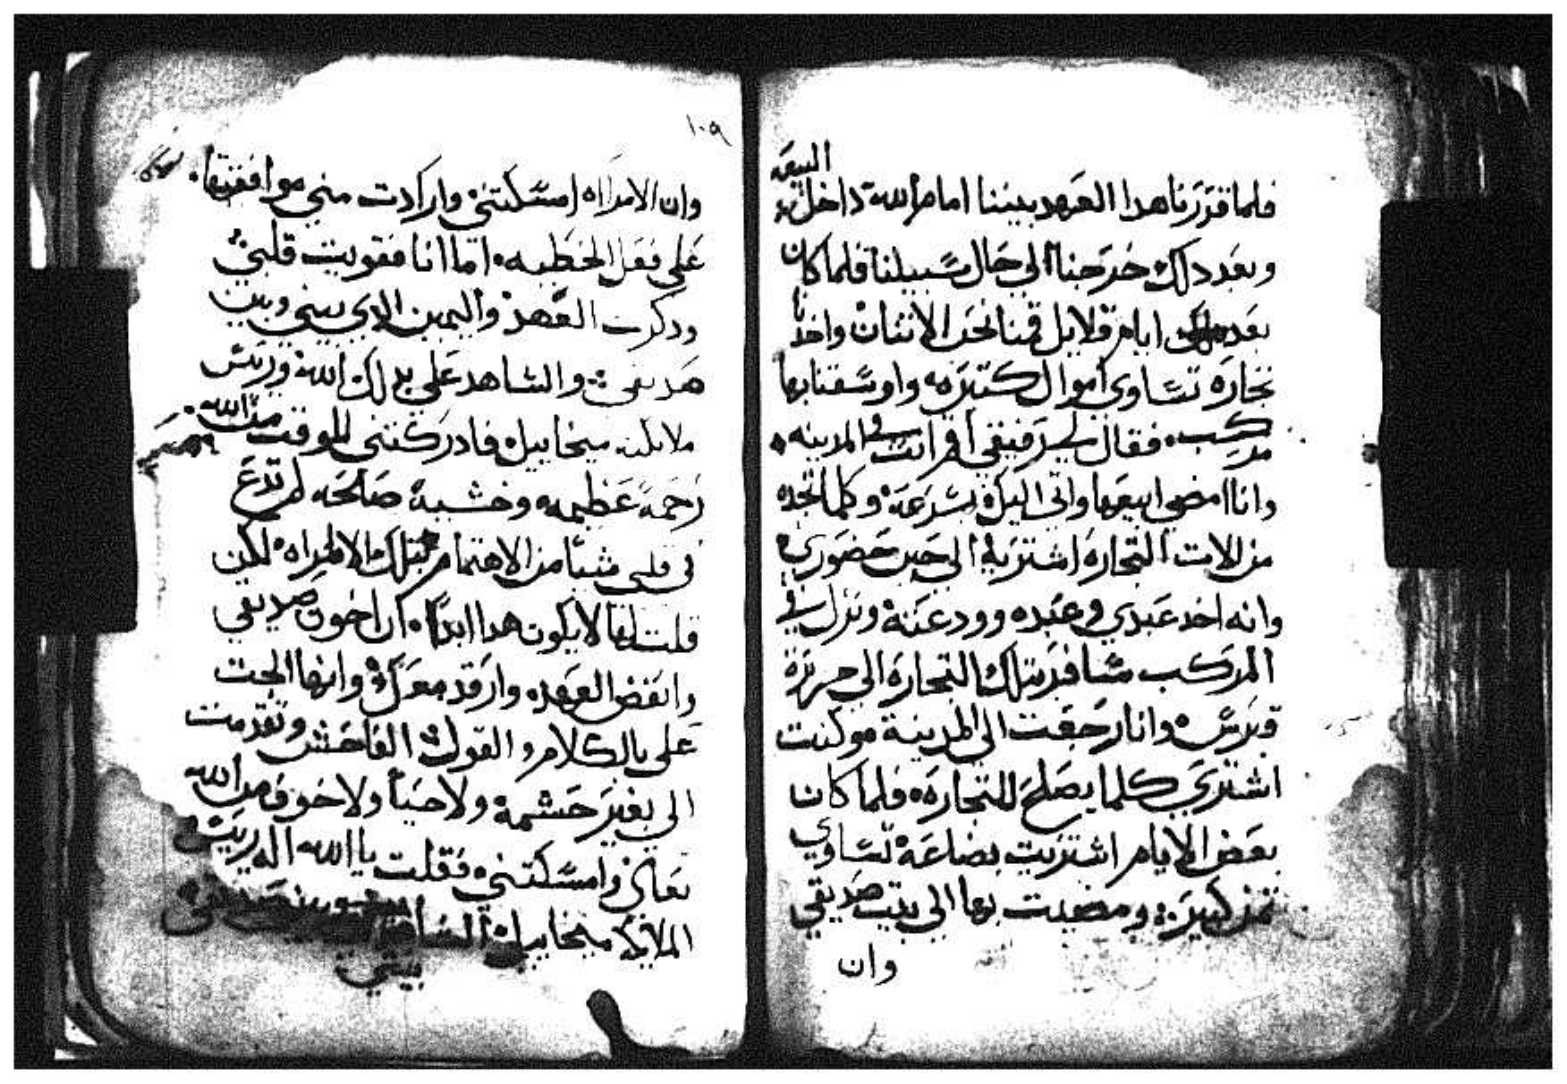 البيعه
فلما قررنا هدا العهد بيننا امام الله داخل
وبعد دلك خرجنا الي حال سبيلنا فلما كان
بعد ايام قلايل قمنا نحن الاتنان واخدنا
تجاره تساوي اموال كتيره واوسقنابها
مركب فقال لي رفيقي اقم انت في المدينه
وانا امضي ابيعها واتي اليك بسرعه وكلما تجده
من الات التجاره اشتريه الي حين حضوري
وانه اخد عبدي وعبده وودعته ونزل في
المركب مسافر بتلك التجاره الي جزيرة
قبرس وانا رجعت الي المدينة وكنت
اشتري كلما يصلح للتجاره فلما كان
بعض الايام اشتريت بضاعه تساوي
تمن كبير ومضيت بها الي بيت صديقي
وان
١٠٩
وان الامراه امسكتني وارادت مني موافقتها
علي فعل الخطيه اما انا فقويت قلبي
ودكرت العهد واليمين الدي بيني وبين
صديقي والشاهد علي دلك الله وريس
ملايكته ميخاييل فادركتني للوقت من الله
رحمة عظيمه وخشية صالحه لم تدع
في قلبي شيا من الاهتمام بتلك الامراه لكن
قلت لها لا يكون هدا ابدا ان اخون صديقي
وانقض العهد وارقد معك وانها الحت
علي بالكلام والقول الفاحش وتقدمت
الي بغير حشمة ولا حيا ولا خوف من الله
تعالي وامسكتني فقلت يا الله اله ريس
الملايكه ميخاييل
بيتي